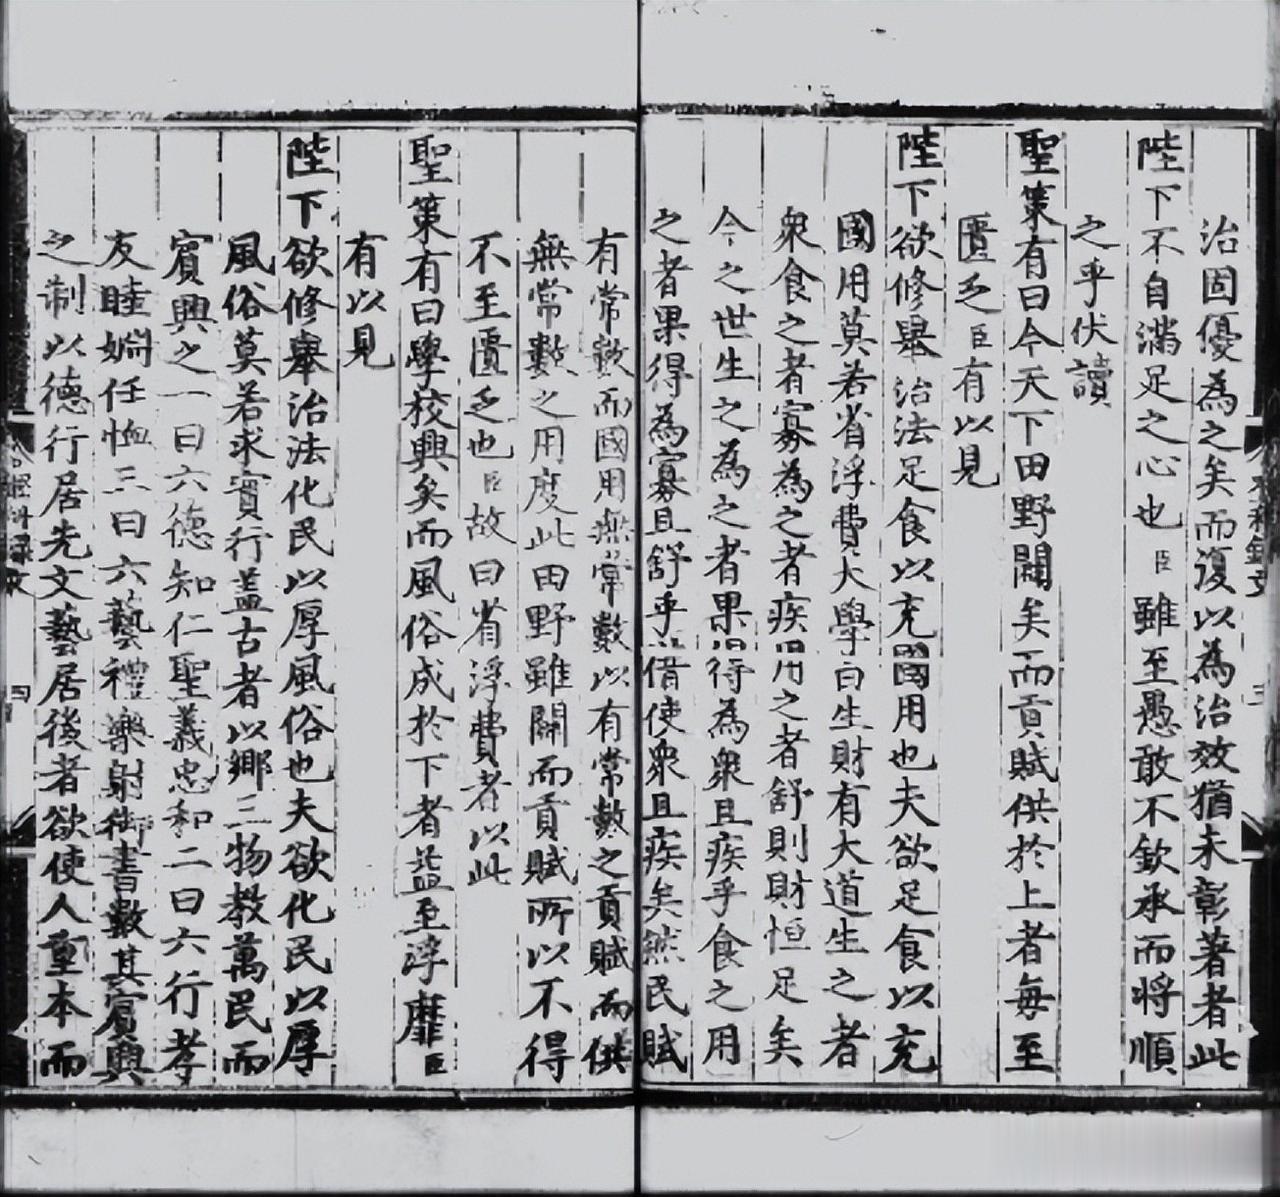 治固優為之矣而復以為治效猶未彰著者此
陛下不自滿足之心也臣雖至愚敢不欽承而將順
之乎伏讀
聖策有曰今天下田野闢矣而貢賦供於上者每至
匱乏臣有以見
陛下欲修舉治法足食以充國用也夫欲足食以充
國用莫若省浮費大學曰生財有大道生之者
衆食之者寡為之者疾用之者舒則財恒足矣
今之世生之為之者果得為衆且疾乎食之用
之者果得為寡且舒乎借使衆且疾矣然民賦
有常數而國用無常數以有常數之貢賦而供
無常數之用度此田野雖闢而貢賦所以不得
不至匱乏也臣故曰省浮費者以此
聖策有曰學校興矣而風俗成於下者益至浮靡臣
有以見
陛下欲修舉治法化民以厚風俗也夫欲化民以厚
風俗莫若求實行蓋古者以鄉三物教萬民而
賓興之一曰六德知仁聖義忠和二曰六行孝
友睦婣任恤三曰六藝禮樂射御書數其賓興
之制以德行居先文藝居後者欲使人重本而
四